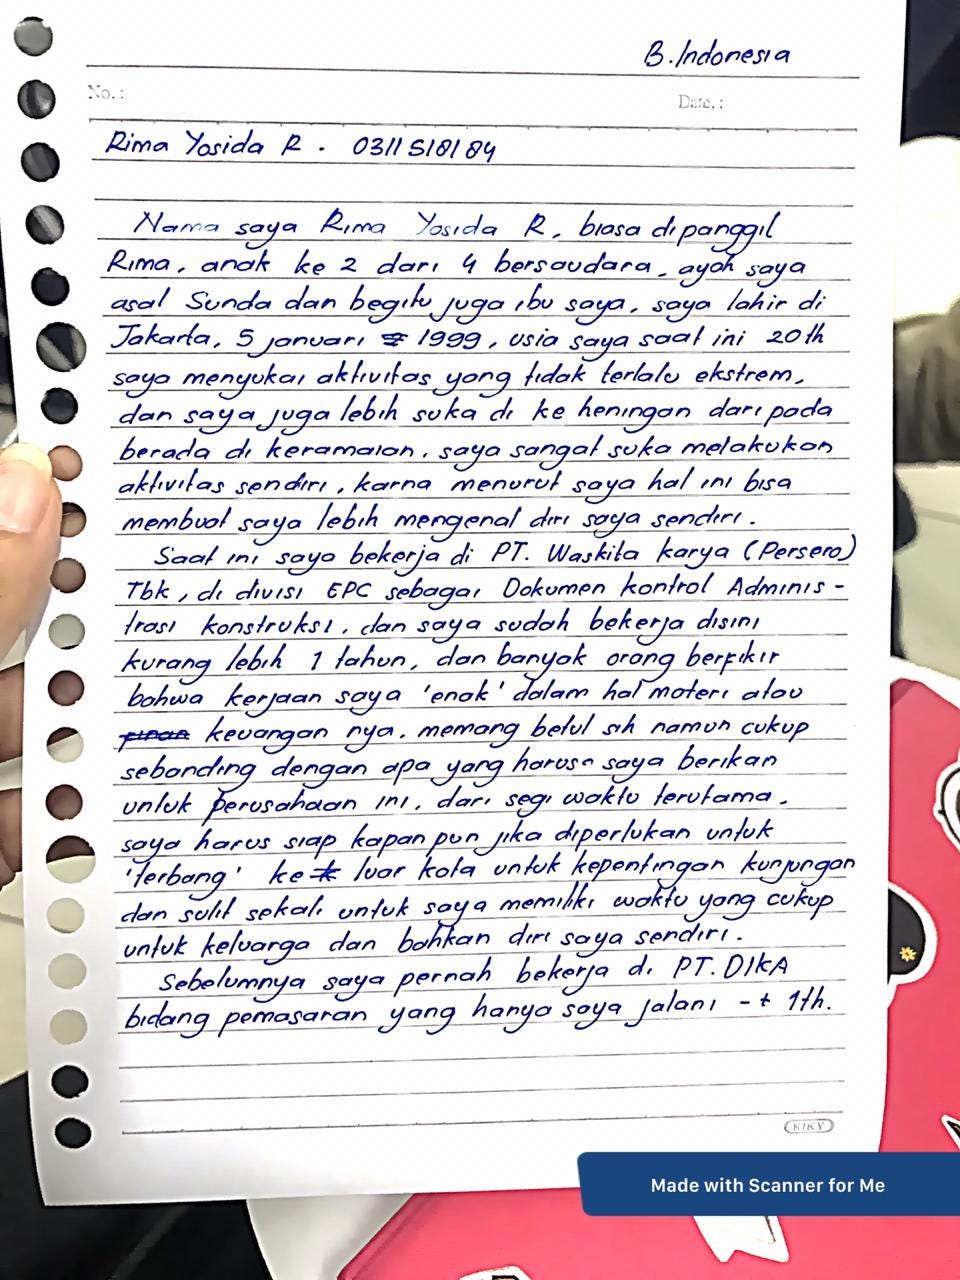 B. Indonesia
No.:
Date.:
Rima Yosida R. 0311518184
Nama saya Rima Yosida R, biasa dipanggil
Rima, anak ke 2 dari 4 bersaudara, ayah saya
asal Sunda dan begitu juga ibu saya, saya lahir di
Jakarta, 5 januari 1999, usia saya saat ini 20th
saya menyukai aktivitas yang tidak terlalu ekstrem,
dan saya juga lebih suka di ke heningan dari pada
berada di keramaian. saya sangat suka melakukan
aktivitas sendiri, karna menurut saya hal ini bisa
membuat saya lebih mengenal diri saya sendiri.
Saat ini saya bekerja di PT. Waskita karya (Persero)
Tbk, di divisi EPC sebagai Dokumen kontrol Adminis-
trasi konstruksi, dan saya sudah bekerja disini
kurang lebih 1 tahun, dan banyak orang berfikir
bahwa kerjaan saya 'enak' dalam hal materi atau
keuangan nya. memang betul sih namun cukup
sebanding dengan apa yang harus saya berikan
untuk perusahaan ini, dari segi waktu terutama.
saya harus siap kapan pun jika diperlukan untuk
'terbang' ke luar kota untuk kepentingan kunjungan
dan sulit sekali untuk saya memiliki waktu yang cukup
untuk keluarga dan bahkan diri saya sendiri.
Sebelumnya saya pernah bekerja di PT. DIKA
bidang pemasaran yang hanya saya jalani -+ 1th.
KIKY
Made with Scanner for Me